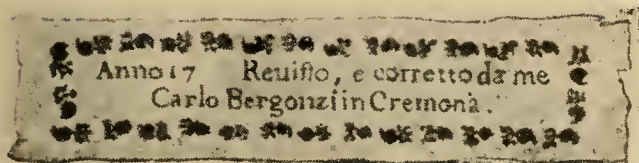 Anno 17 Reuiſto, e corretto da me
Carlo Bergonzi in Cremona.